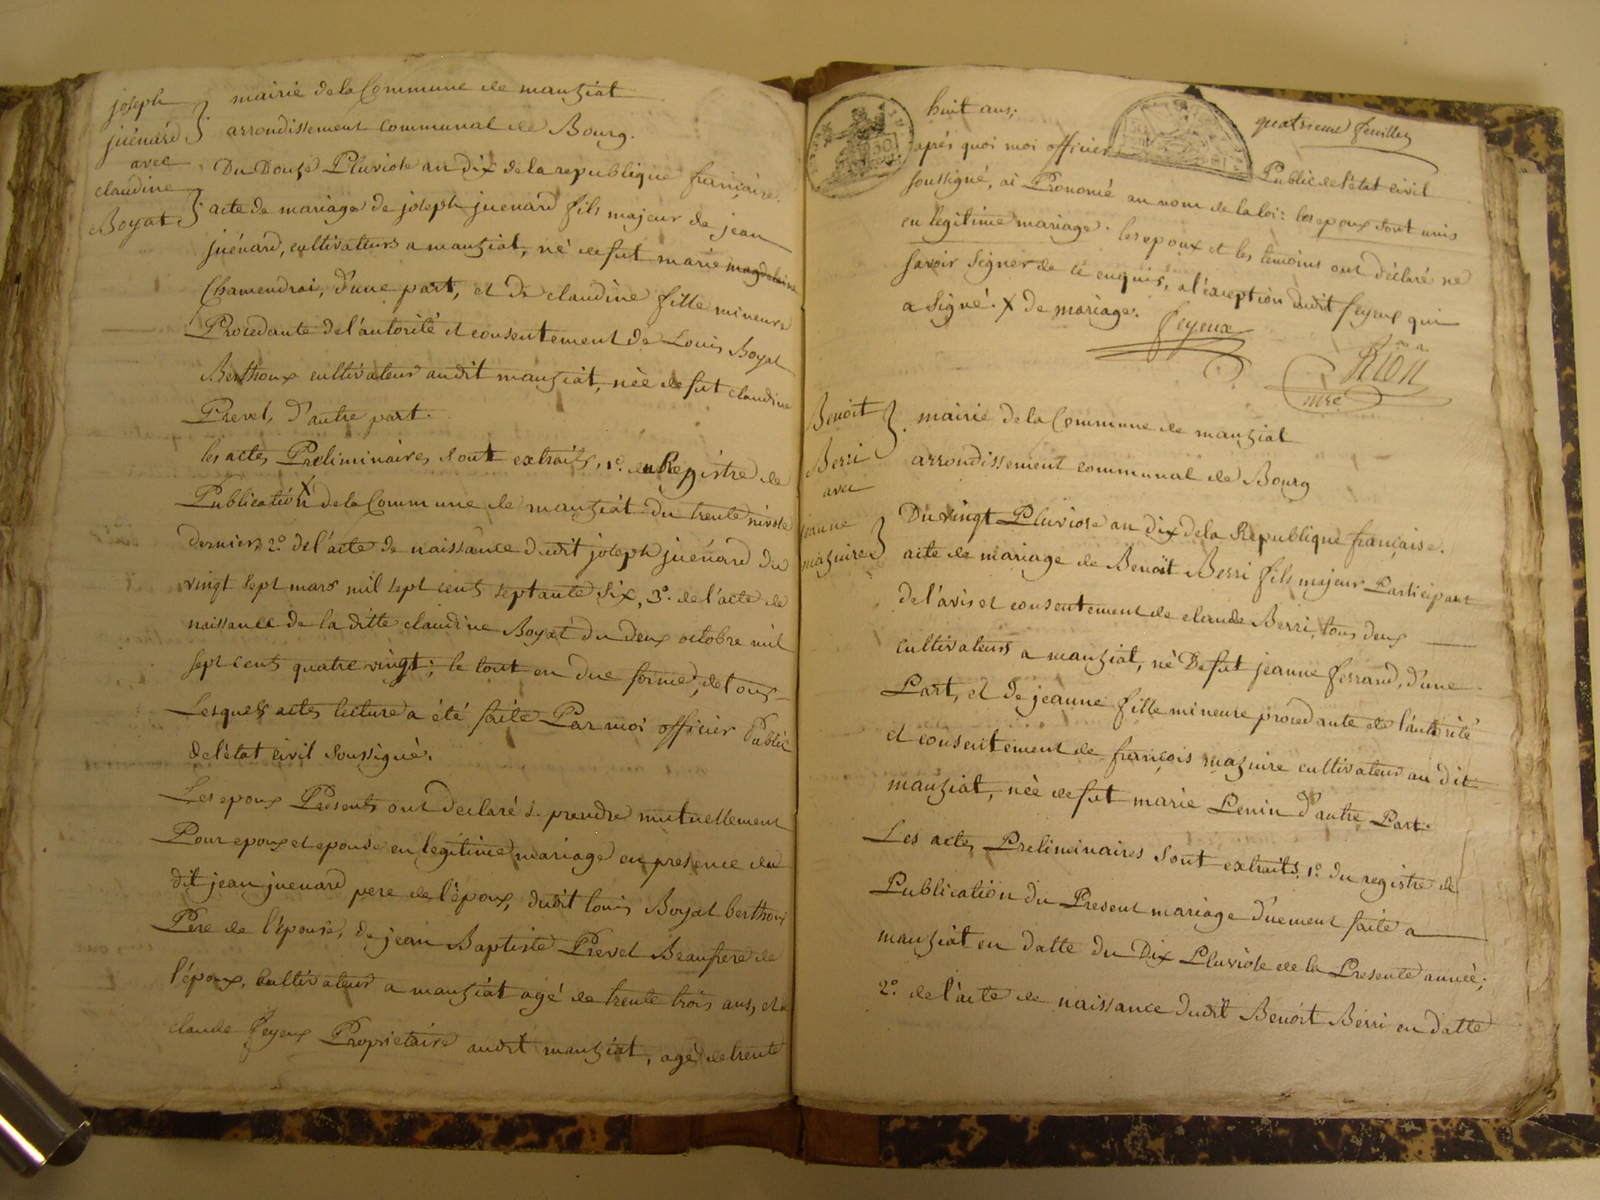 joseph
juénard
avec
claudine
Boyat
mairie de la Commune de manziat
arrondissement communal de Bourg.
Du Douze Pluviose an dix de la republique française.
acte de mariage de joseph juenard fils majeur de jean
juénard, cultivateurs a manziat, né de fut marie magdelaine
Chamendrai, d'une part, et de claudine fille mineure
Procedante de l'autorité et consentement de Louis Boyat
Berthoux cultivateur audit manziat, née de fut claudine
Prevel, d'autre part.
les actes Preliminaires sont extraits, 1º. du Registre de
Publication X de la Commune de manziat du trente nivose
dernier, 2º. de l'acte de naissance dudit joseph juénard du
vingt sept mars mil sept cent septante six, 3º. de l'acte de
naissance de la ditte claudine Boyat du deux octobre mil
sept cent quatre vingt; le tout en due forme, de tous
Lesquels actes lecture a été faite Par moi officier Public
de l'état civil soussigné.
Les epoux Presents ont declaré se prendre mutuellement
Pour epoux et epouse en legitime mariage en presence du
dit jean juenard pere de l'époux, dudit louis Boyat berthoux
Pere de l'épouse, de jean Baptiste Prevel Beaufrere de
l'époux, cultivateur a manziat agé de trente trois ans, et de
claude feyeux Proprietaire audit manziat, agé de trente
quatrieme feuillet
huit ans;
après quoi moi officier Public de l'état civil
soussigné, ai Prononcé au nom de la loi: les epoux sont unis
en legitime mariage. les epoux et les temoins ont déclaré ne
savoir signer de ce enquis, a l'exception dudit feyeux qui
a signé. X de mariage.
feyeux
Rion
mre
Benoit
Berri
avec
jeanne
mazuire
mairie de la Commune de manziat
arrondissement communal de Bourg
Du vingt Pluviose an dix de la Republique française.
acte de mariage de Benoit Berri fils majeur Participant
de l'avis et consentement de claude Berri, tous deux
cultivateurs a manziat, né De fut jeanne ferrand, d'une
Part, et de jeanne fille mineure procedante de l'autorité
et consentement de françois mazuire cultivateur au dit
manziat, née de fut marie Penin d'autre Part.
Les actes Preliminaires sont extraits, 1º. du registre de
Publication du Present mariage d'uement faite a
manziat en datte du Dix Pluviose de la Presente année;
2º. de l'acte de naissance dudit Benoit Berri en datte